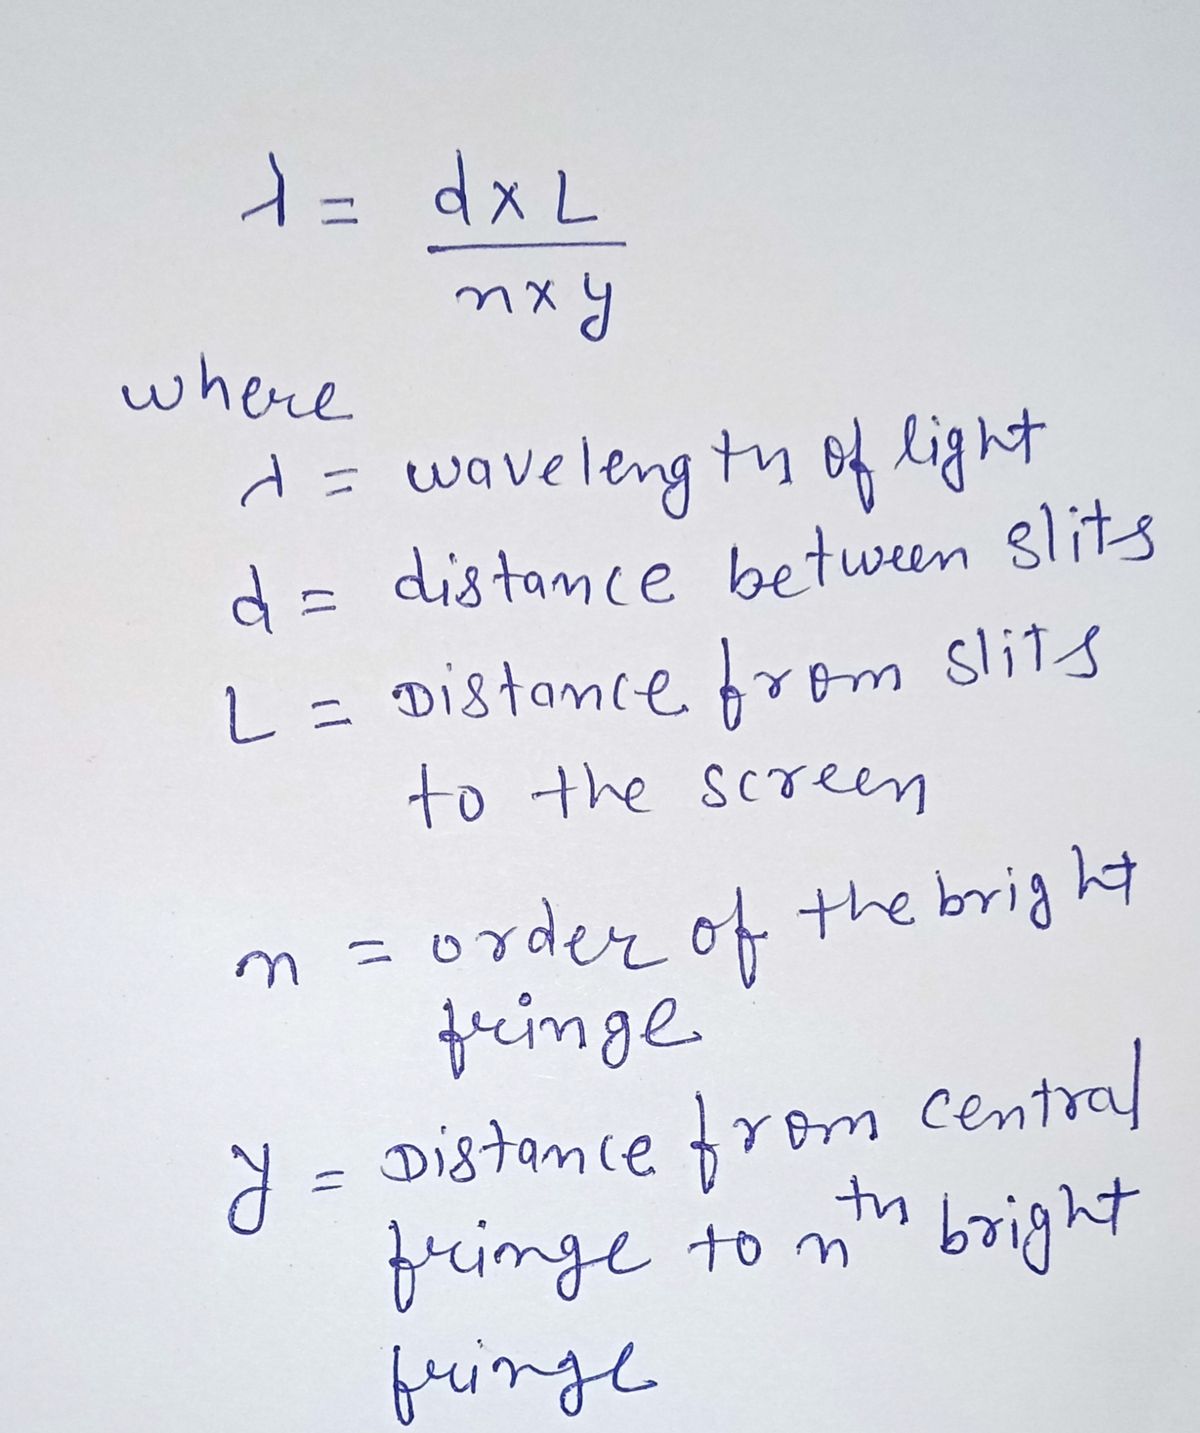 λ = d x L
n x y
where
λ = wavelength of light
d = distance between slits
L = Distance from slits
to the screen
n = order of the bright
fringe
y = Distance from central
fringe to nth bright
fringe